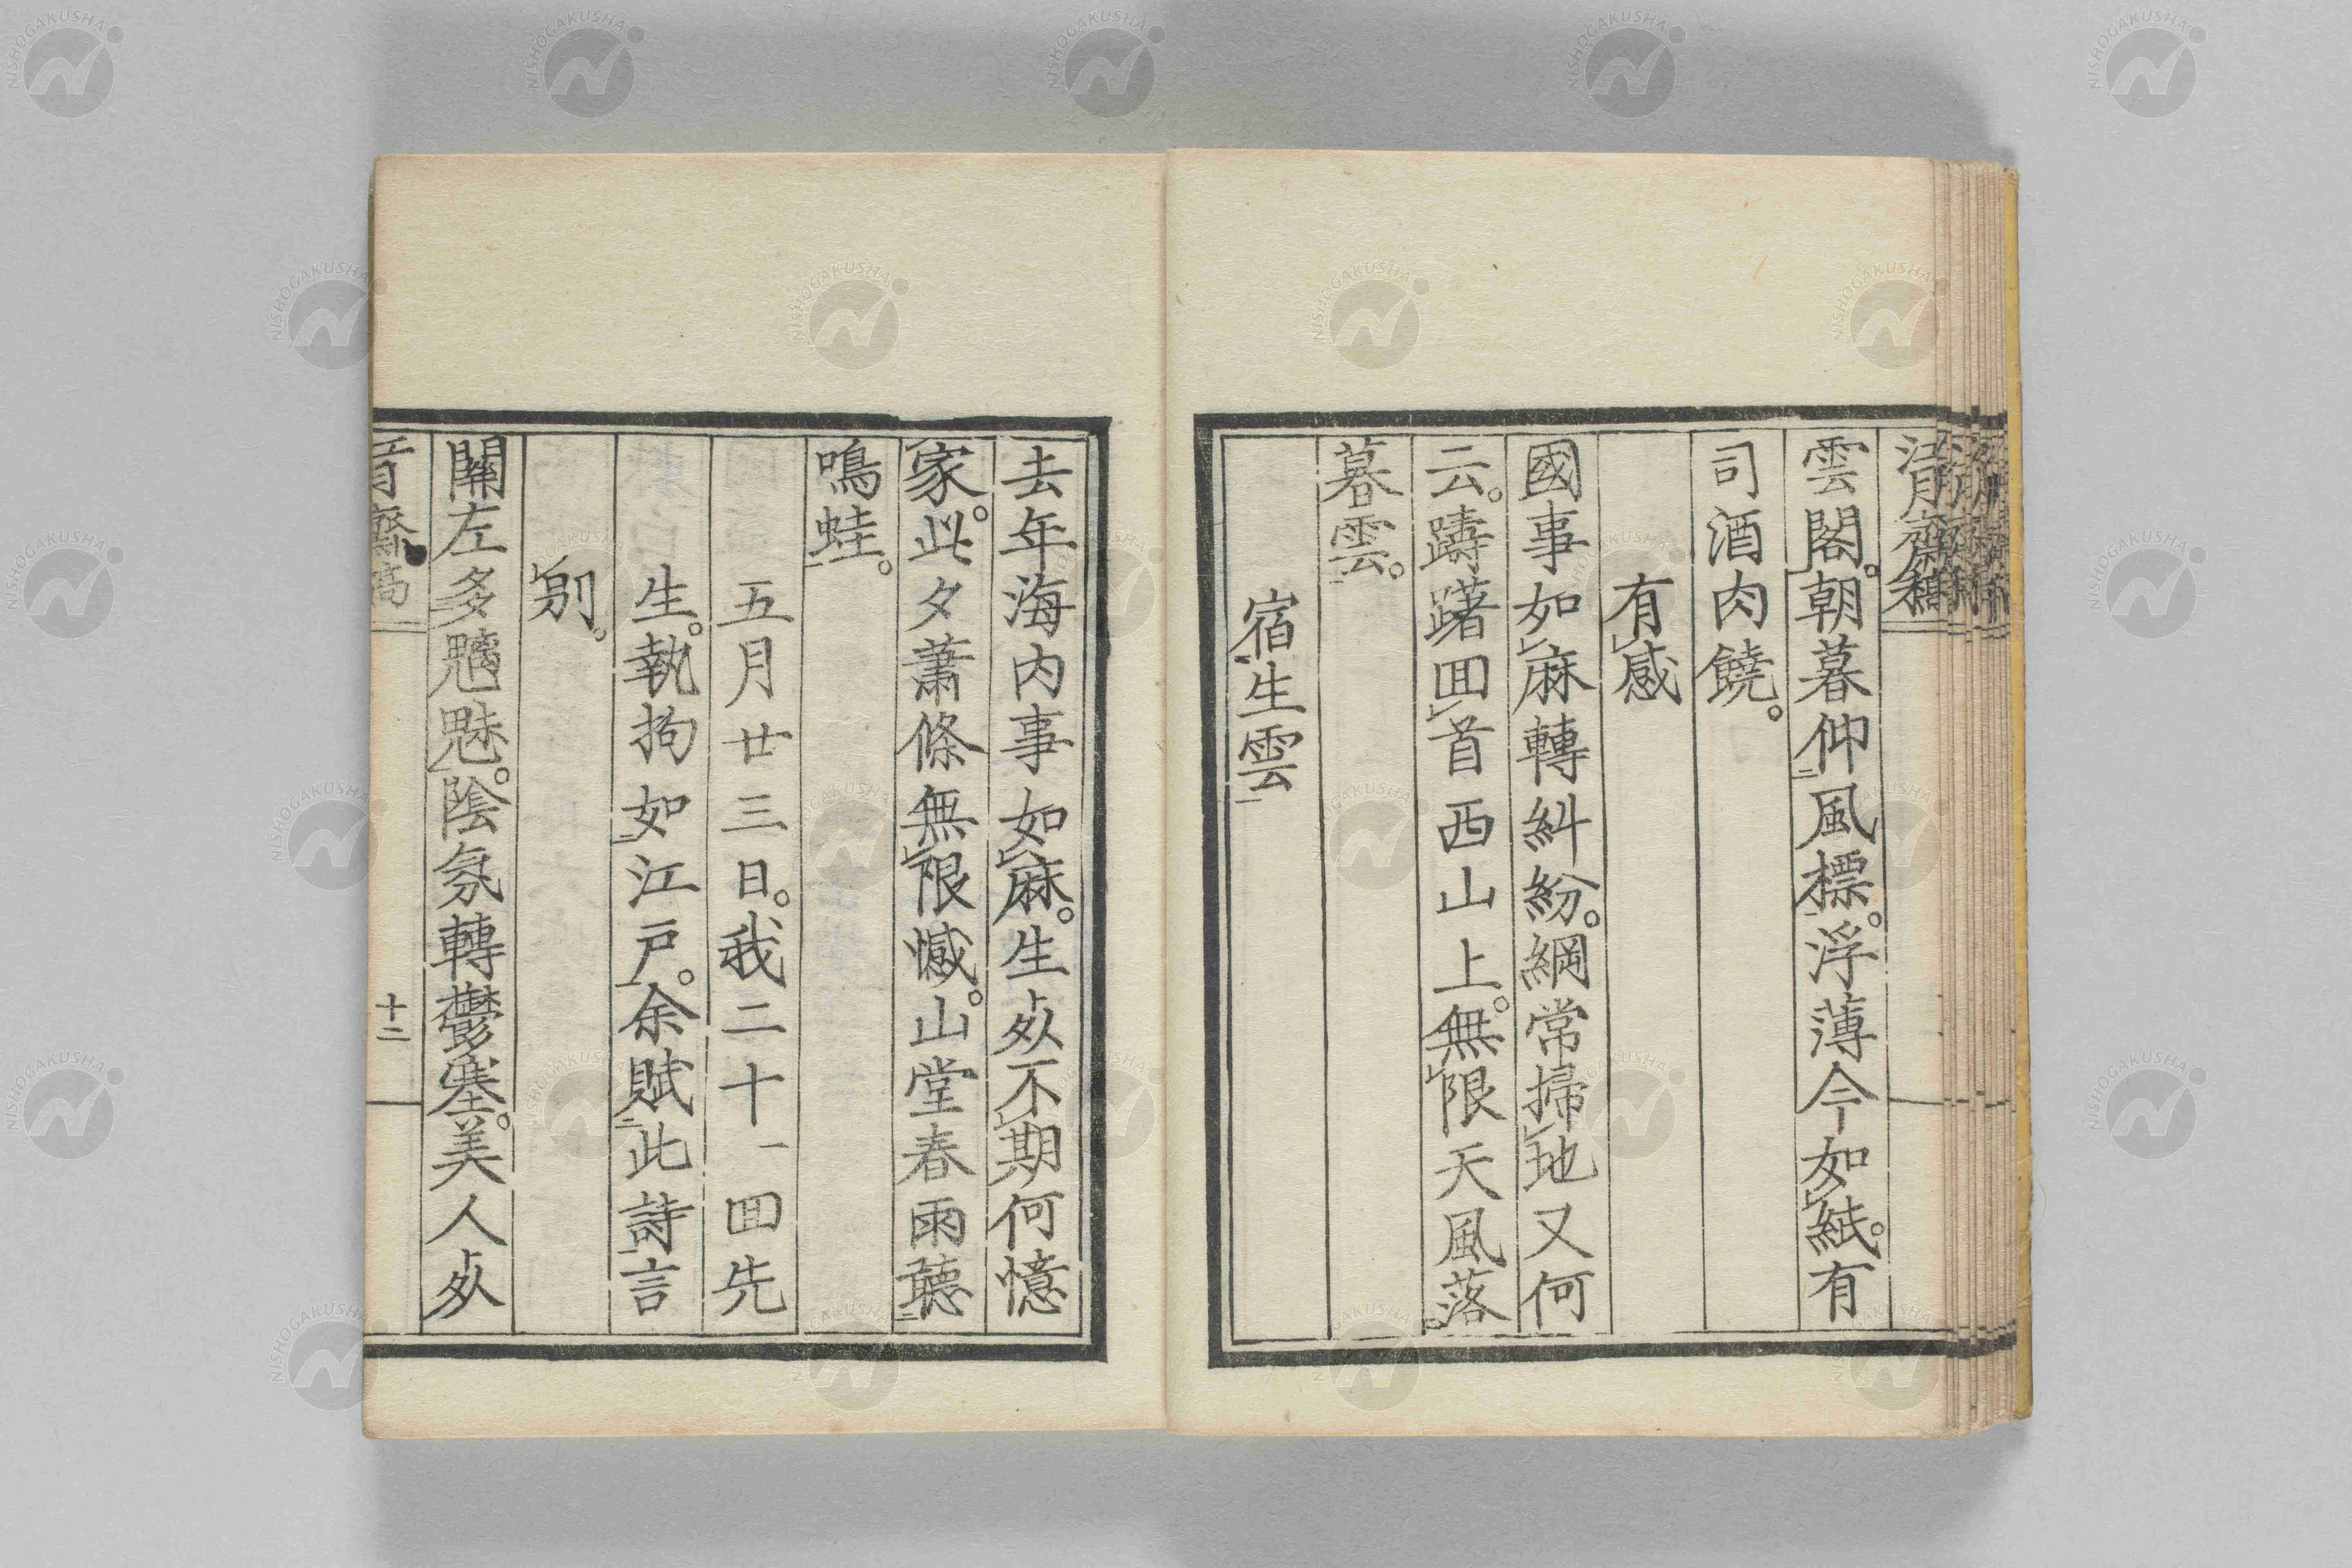 清齋稿
雲閣。朝暮仰風標。浮薄今如紙。有
司酒肉饒。
有感
國事如麻轉糾紛。綱常掃地又何
云。躊躇囬首西山上。無限天風落
暮雲。
宿生雲
去年海内事如麻。生死不期何憶
家。此夕蕭條無限憾。山堂春雨聽
鳴蛙。
五月廿三日。我二十一囬先
生。執拘如江戸。余賦此詩言
別。
關左多魑魅。陰氛轉鬱塞。美人死
十二
NISHOGAKUSHA